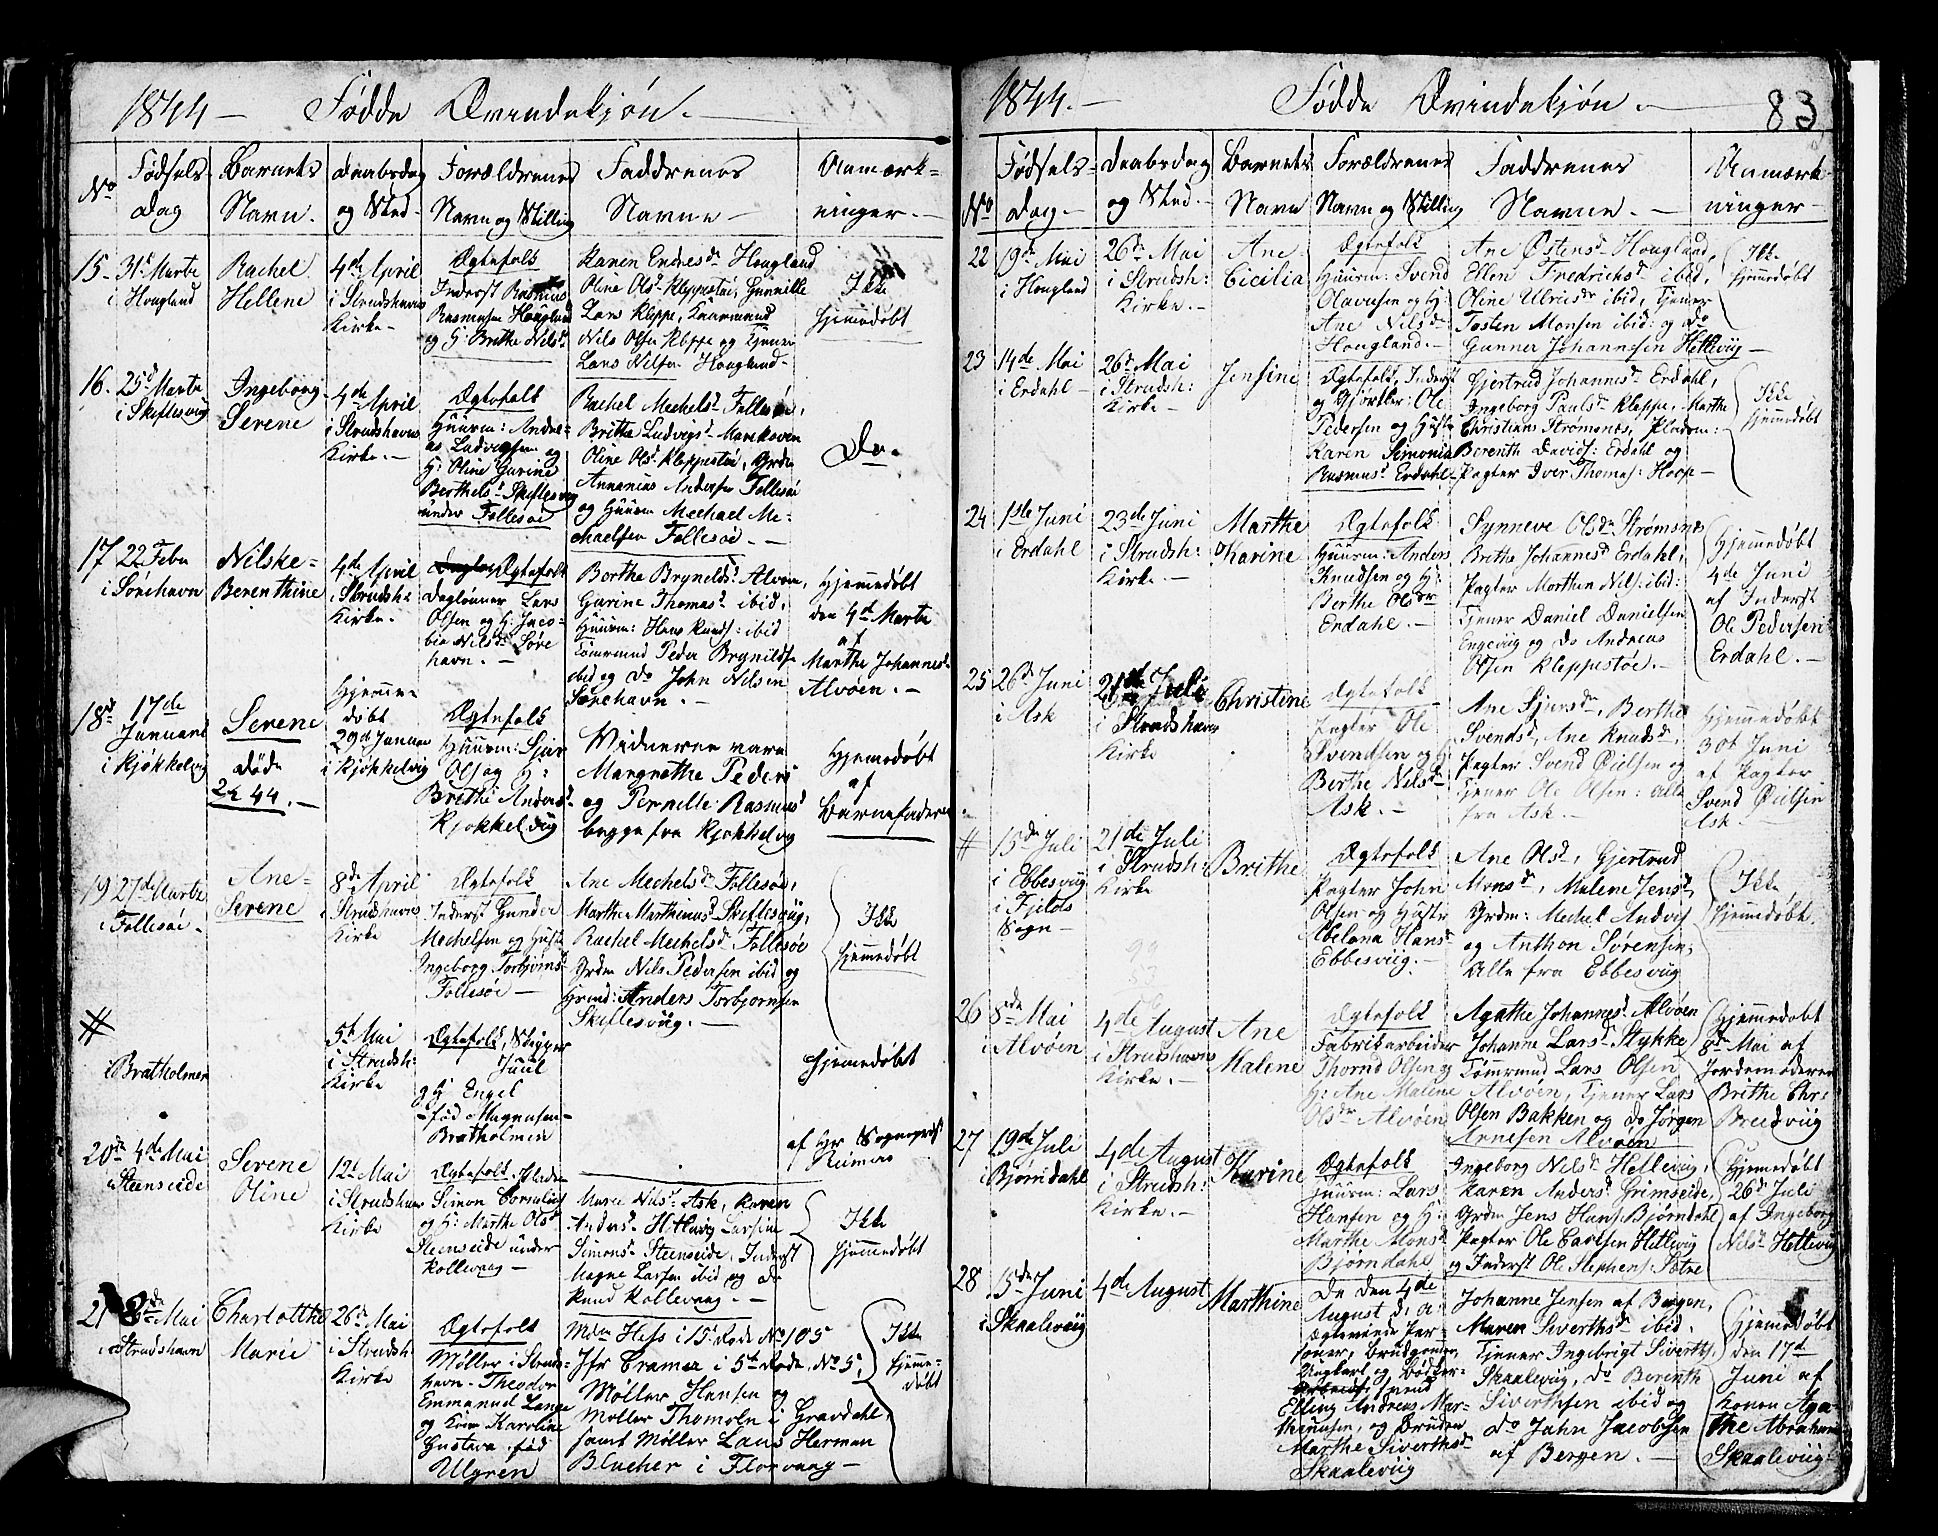 1844 — Fødde Qvindekjøn. —
No
Fødsels
Dag
Barnets
Navn.
Daabsdag
og Sted.
Forældrenes
Navn og Stilling
Faddrenes
Navne —
Anmærk-
ninger. —
15.
31t Marts
i Hougland
Rachel
Hellene
4de April
i Strudshavns
Kirke —
Ægtefolk
Inderst Rasmus
Rasmusen Hougland
og H: Brithe Nilsd.
Karen Endresdr Hougland
Oline Olsd. Kleppestøe, Gunnille
Lars Kleppe, Gaarmand
Nils Olsen Kleppe og Tjener
Lars Nilsen Hougland.
Ikke
hjemmedøbt
16.
25d Marts
i Skiftesviig
Ingeborg
Serene
4de April
i Strudshavns
Kirke. —
Ægtefolk
Huusm: Andre-
as Ludvigsen og
H: Oline Gurine
Berthelsd. Skiftesviig
under Follesøe
Rachel Mechelsd. Follesøe,
Brithe Ludvigsd.
Oline Olsd. Kleppestøe, Grdm
Annanias Andersen Follesøe
og Huusm Mechael Me-
chaelsen Follesøe. —
Do.
17
22 Febr
i Sørehavn
Nilske-
Berenthine
4de April
i Strudsh:
Kirke.
Ægtefolk
Daglønner Lars
Olsen og H: Jaco-
bie Nilsdr Søre
havn. —
Berthe Brynildsd. Alvøen,
Gurine Thomasd. ibid,
Huusm: Hans Knuds: ibid
Tømrmnd Peder Brynilds.
ibid og Do John Nilsen
Sørehavn. —
Hjemmedøbt
den 4d Marts
af
Marthe Johannesd.
Alvøen. —
18
17de
Januari
i Kjøkkelviig
Serene
døde
2/2 44. —
Hjemme-
døbt
29d Januar
i Kjøkkelviig
Ægtefolk
Huusm: Sjur
Ols og H:
Brithe Andersd.
Kjøkkelviig
Vidnerne vare
Margrethe Peders
og Pernille Rasmusd
begge fra Kjøkkelviig
Hjemmedøbt
af
Barnefaderen
19
27de Marts
i Follesøe.
Ane-
Serene
8de April
i Strudshavns
Kirke
Ægtefolk
Inderst Gunder
Mechelsen og Hust:
Ingeborg Torbjørnsd.
Follesøe —
Ane Mechelsd. Follesøe,
Marthe Marthinusd. Skiftesviig,
Rachel Mechelsd. Follesøe
Grdm Nils Pedersen ibid og
Anders Torbjornsen
Skiftesviig. —
Ikke
hjemmedøbt
#
i Bratholmen
5t Mai
i Strudsh:
Kirke
Ægtefolk, Skipper
Juul
og H: Engel
— fød Magnusen —
Bratholmen
Hjemmedøbt
af Hr Sognepræst
20
4de Mai
i Steenseide
Serene
Oline
12t Mai
i Strudshavns
Kirke
Ægtefolk. Pladsm
Simon Cornelius
og H: Marthe Olsd.
Steenseide under
Kollevaag —
Maren Nilsd. Ask, Karen
Andersd. Hetleviig
Simonsd. Steenseide, Inderst
Mogne Larsen ibid og Do
Knud Kollevaag. —
Ikke
hjemmedøbt
21
2de Mai
i Strudshavn
Charlotthe
Marie
26d Mai
i Strudsh:
Kirke
Ægtefolk
Møller i Struds-
havn — Theodor
Emmanuel Lange
og Kone Karoline
Gustava, fød
Ulgren
Mdm Hess i 15. Rode No 105
Jfr Cramer i 5t Rode No 5,
Møller Hansen og
Møller Thomsen i Gravdahl,
samt Møller Laus Herman
Blucher i Florvaag —
Ikke
hjemme-
døbt
1844. — Fødde Qvindekjøn. — 83
No
Fødsels-
Dag. —
Daabsdag
og Sted. —
Barnets
Navn
Forældrenes
Navn og Stilling
Faddrenes
Navne. —
Anmærk-
ninger —
22
19de Mai
i Hougland
26de Mai
i Strudsh:
Kirke. —
Ane
Cicilia
Ægtefolk
Huusm: Svend
Olavesen og H:
Ane Nilsdr
Hougland. —
Ane Østensd. Hougland,
Ellen Fredrichsd. ibid,
Oline Ulricsdr ibid, Tjener
Tosten Monsen ibid: og Do
Gunner Johannesen Hetleviig —
Ikke
hjemmedøbt
23
14de Mai
i Erdahl —
26d Mai
i Strudsh:
Kirke —
Jensine
Ægtefolk, Inderst
og Gjørtler: Ole
Pedersen og Hustr
Karen Simonia
Rasmusd. Erdahl —
Gjertrud Johannesd. Erdahl,
Ingeborg Paulsd. Kleppe, Marthe
Christians Strømsnes, Pladsm:
Berenth Davids: Erdahl og
Pagter Iver Thomas: Hoop —
Ikke
hjemmedøbt
24
1ste Juni
i Erdahl
23de Juni
i Strudsh:
Kirke. —
Marthe
Karine
Ægtefolk
Huusm: Anders
Knudsen og H:
Berthe Olsdr
Erdahl. —
Synneve Olsdr Strømsnes
Brithe Johannesd. Erdahl,
Pagter Morthen Nils: ibid:
Tjener Daniel Danielsen
Engeviig og Do Andreas
Olsen Kleppestøe. —
Hjemmedøbt
4de Juni
af Inderst
Ole Pedersen
Erdahl. —
25
26d Juni
i Ask
21de Juli
i Strudshavns
Kirke
Christine
Ægtefolk
Pagter Ole
Svendsen og H:
Berthe Nilsdr
Ask. —
Ane Sjursdr, Berthe
Svendsd, Ane Knudsd,
Pagter Svend Øielsen og
Tjener Ole Olsen: alle
fra Ask. —
Hjemmedøbt
30t Juni
af Pagter
Svend Øielsen
Ask. —
#
15de Juli
i Ebbesviig
i Fjelds
Sogn —
21de Juli
i Strudsh:
Kirke
Brithe
Ægtefolk
Pagter John
Olsen og Hustr
Abelona Hansd.
Ebbesviig. —
Ane Olsd, Gjertrud
Monsd, Malene Jensd,
Grdm: Mechel Andvis
og Anthon Sørensen,
Alle fra Ebbesviig
Ikke
hjemmedøbt.
26
8de Mai
i Alvøen
4de August
i Strudshavns
Kirke. —
Ane
Malene
Ægtefolk
Fabrikarbeider
Thornd Olsen og
H: Ane Malene
Olsdr Alvøen
Agathe Johannesd. Alvøen
Johanne Larsd. Stykke
Tømrmnd Lars Olsen
Alvøen, Tjener Lars
Olsen Bakken og do Jørgen
Arnesen Alvøen
Hjemmedøbt
8de Mai af
Jordemoderen
Brithe Chr:
Breedviig
27
19de Juli
i Bjørndahl
4de August
i Strudsh:
Kirke. —
Karine
Ægtefolk
Huusm: Lars
Hansen og H:
Marthe Monsd.
Bjørndahl
Ingeborg Nilsd. Hetleviig,
Karen Andersd. Grimseide,
Grdm Jens Hans: Bjørndahl
Pagter Ole Larsen Hetleviig
og Inderst Ole Stephens: Sætre
Hjemmedøbt
26d Juli
af Ingeborg
Nilsd. Hetleviig
28
15de Juni
i Skaaleviig
4de August
Marthine
De den 4de
August d. A.
ægteviede Per-
soner, Brudgommen
Ungkarl og Bødker-
Elling Andreas Mar-
thinusen, og Bruden
Marthe Siverthsd.
Skaaleviig
Johanne Jensen af Bergen,
Maren Siverthsd. ibid.
Tjener Ingebrigt Siverths.
Skaaleviig, Do Berenth
Siverthsen ibid og
Do John Jacobsen
af Bergen. —
Hjemmedøbt
den 17d
Juni af
Konen Aga-
the Abrahams
Skaaleviig